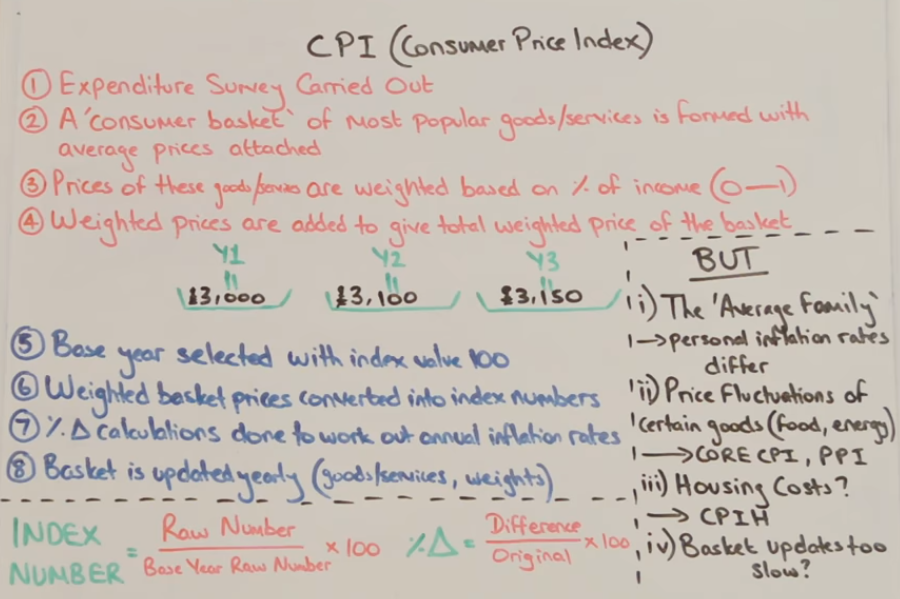 CPI (Consumer Price Index)
① Expenditure Survey Carried Out
② A 'consumer basket' of most popular goods/services is formed with
average prices attached
③ Prices of these goods/services are weighted based on % of income (0—1)
④ Weighted prices are added to give total weighted price of the basket
Y1 Y2 Y3
£3,000 £3,100 £3,150
⑤ Base year selected with index value 100
⑥ Weighted basket prices converted into index numbers
⑦ %Δ calculations done to work out annual inflation rates
⑧ Basket is updated yearly (goods/services, weights)
BUT
i) The 'Average Family'
→ personal inflation rates
differ
ii) Price Fluctuations of
certain goods (food, energy)
→ CORE CPI, PPI
iii) Housing Costs?
→ CPIH
iv) Basket updates too
slow?
INDEX
NUMBER = Raw Number / Base Year Raw Number × 100
%Δ = Difference / Original × 100